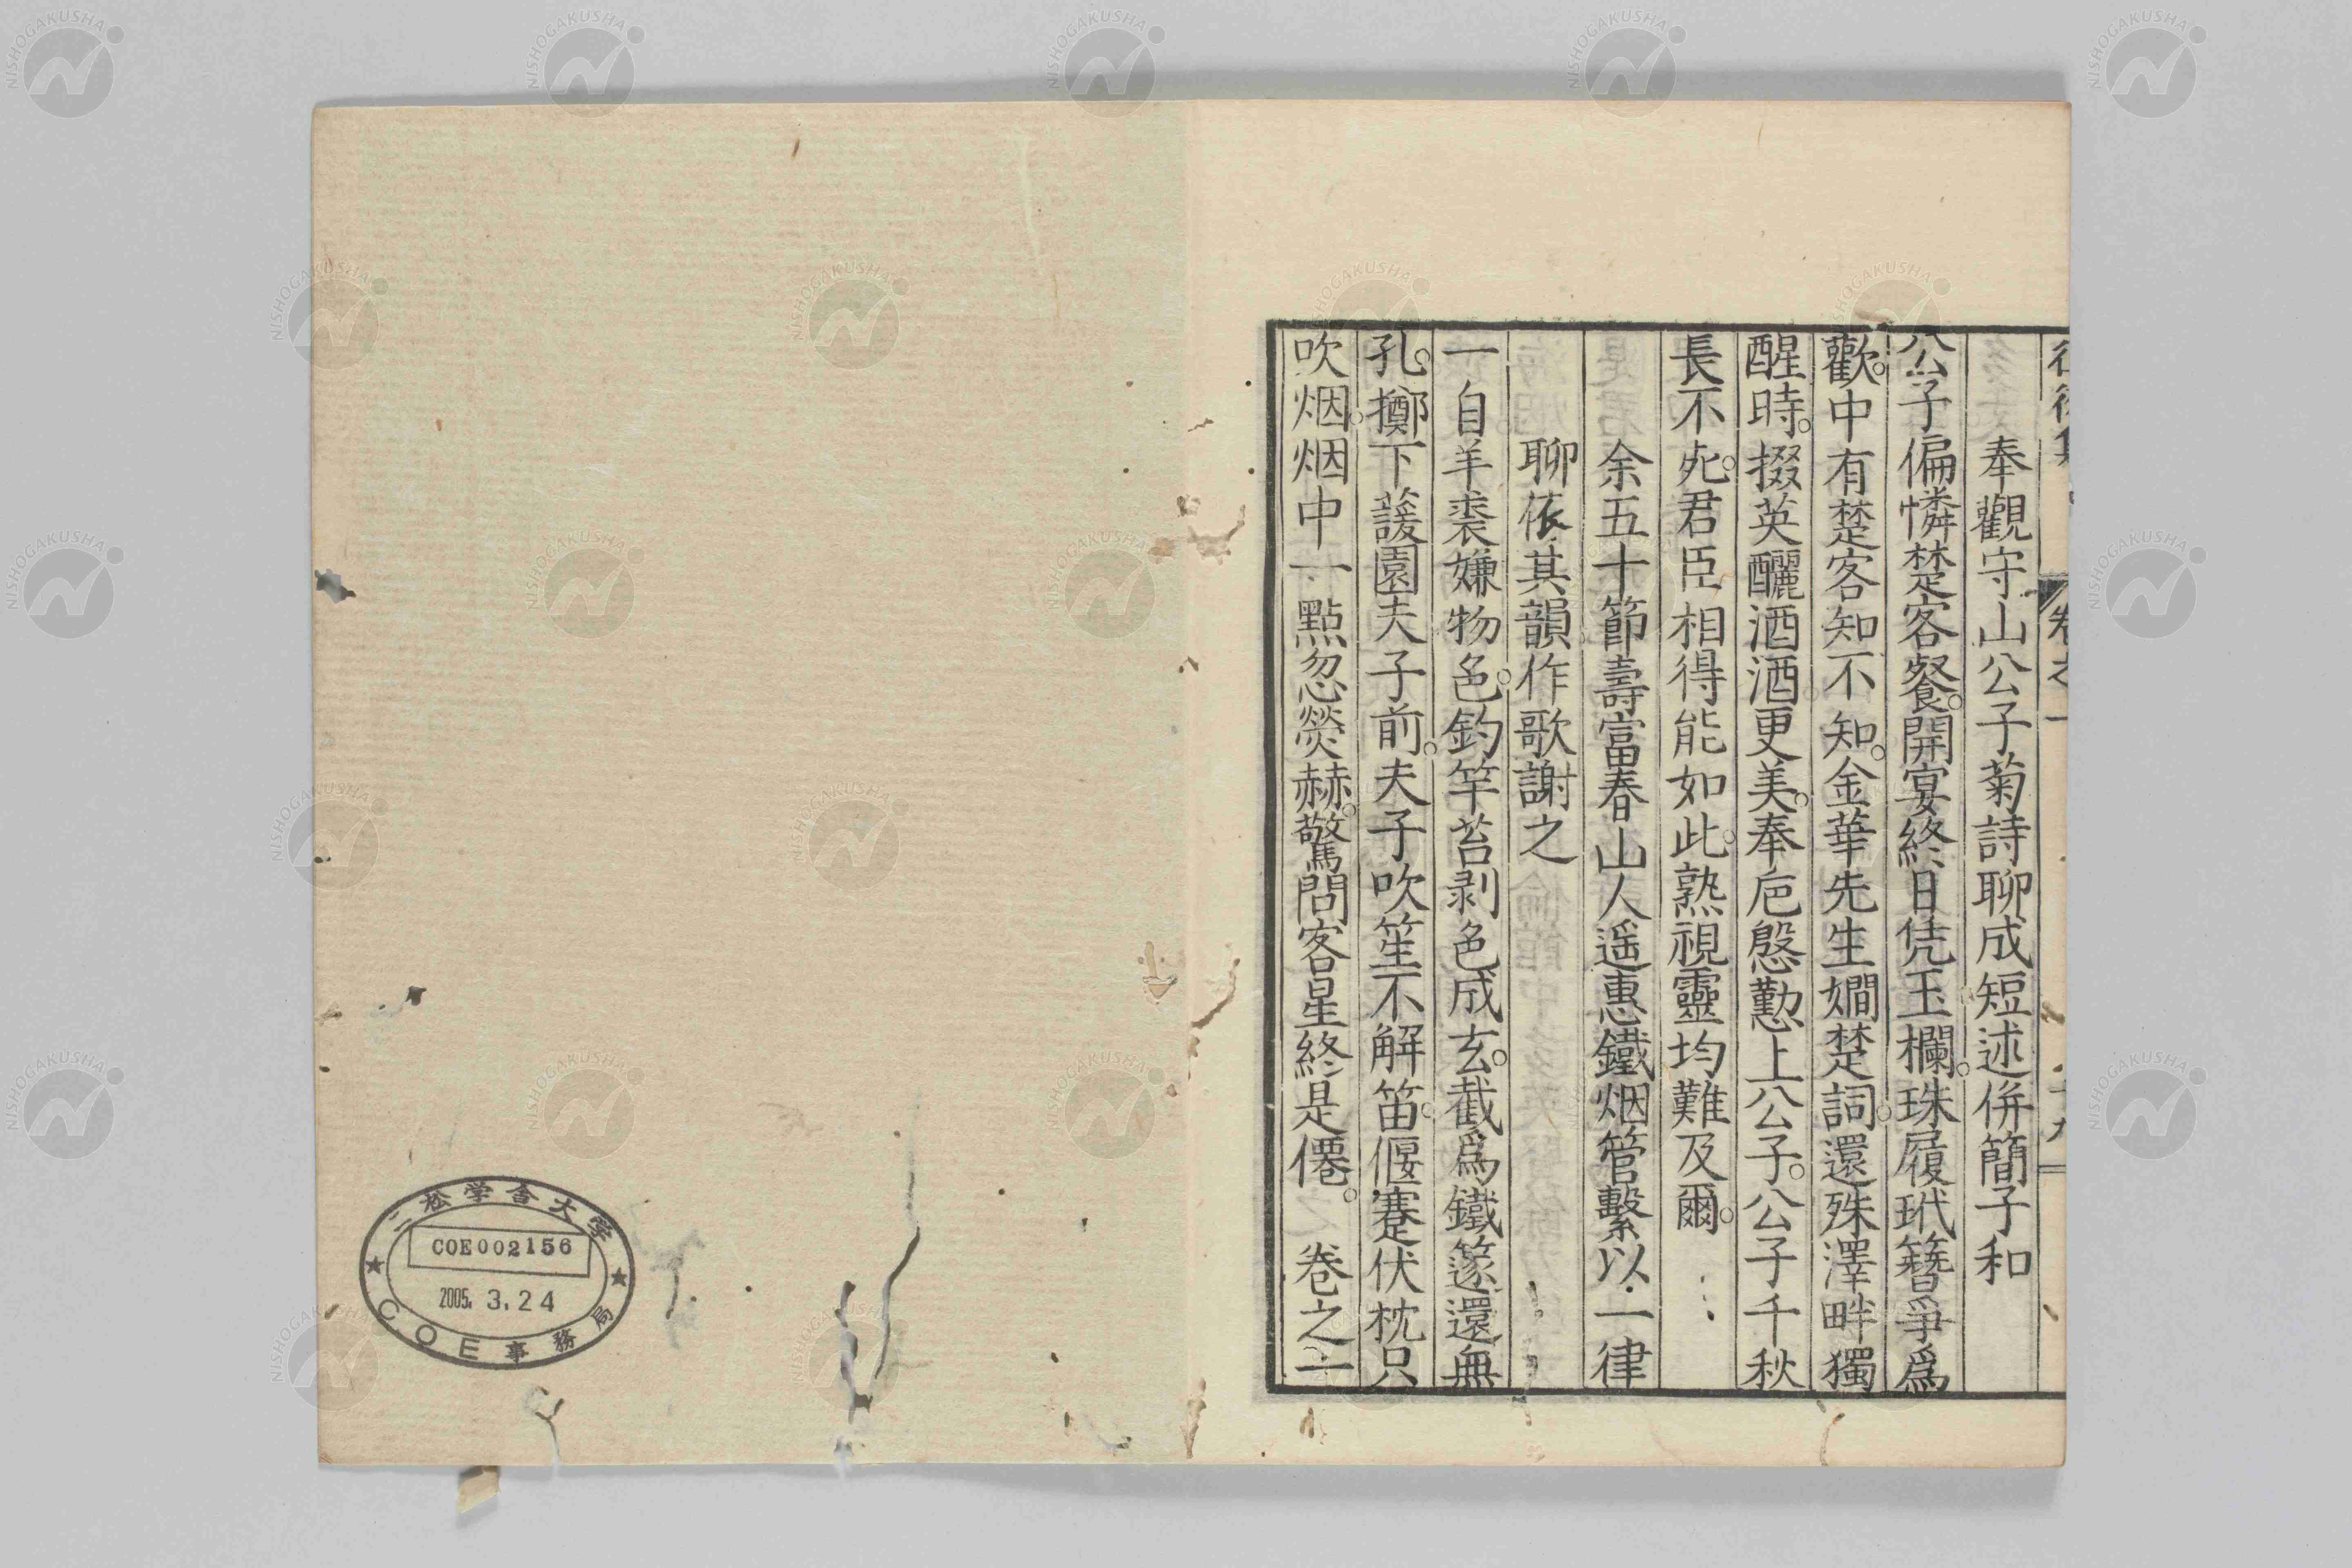 奉觀守山公子菊詩聊成短述併簡子和
公子偏憐楚客餐。開宴終日凭玉欄。珠履玳簪爭爲
歡。中有楚客知不知。金華先生嫺楚詞。還殊澤畔獨
醒時。掇英釃酒酒更美。奉卮慇懃上公子。公子千秋
長不死。君臣相得能如此。熟視靈均難及爾。
余五十節壽富春山人遥惠鐵烟管繫以一律
聊依其韻作歌謝之
一自羊裘嫌物色。釣竿苔剥色成玄。截爲鐵篴還無
孔。擲下蘐園夫子前。夫子吹笙不解笛。偃蹇伏枕只
吹烟。烟中一點忽熒赫。驚問客星終是僊。 卷之一
卷之一
二松学舎大学
COE002156
2005. 3. 24
COE事務局
NISHOGAKUSHA